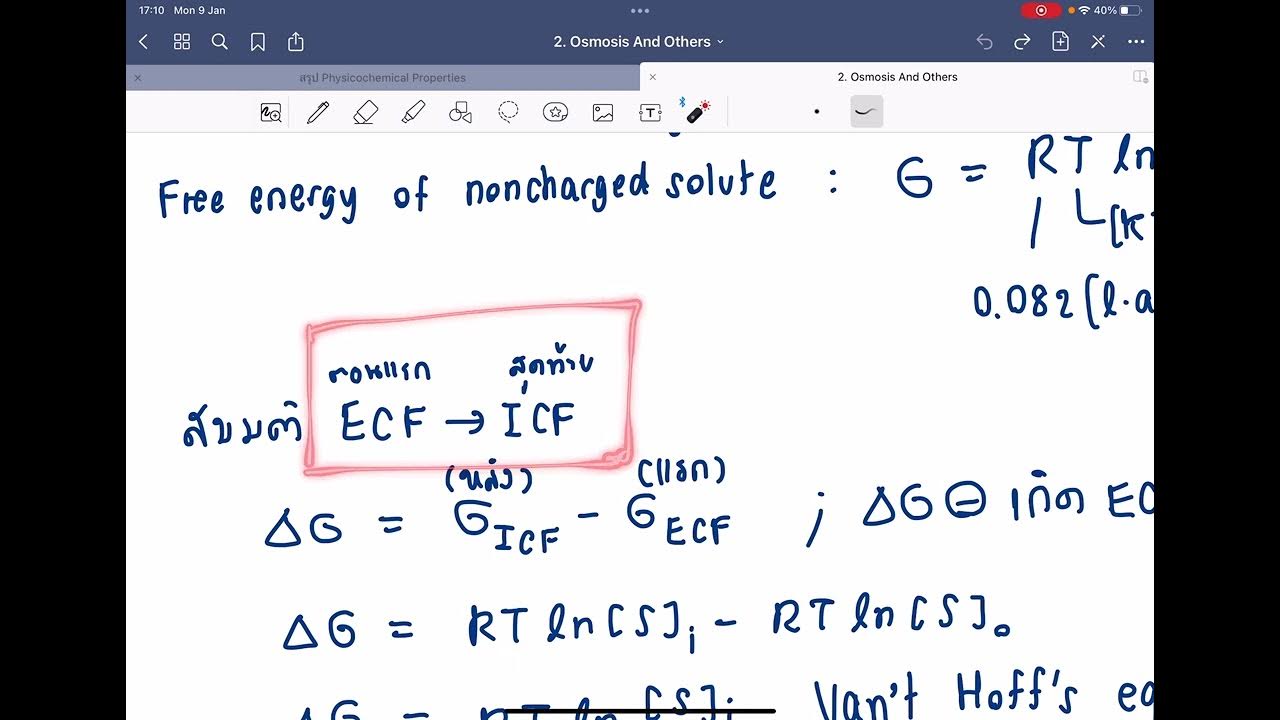 17:10 Mon 9 Jan
40%
2. Osmosis And Others
สรุป Physicochemical Properties
2. Osmosis And Others
Free energy of noncharged solute : G = RT ln
[k
0.082 [l·a
ตอนแรก สุดท้าย
สมมติ ECF → ICF
(หลัง) (แรก)
ΔG = G ICF - G ECF ; ΔG ⊖ เกิด EC
ΔG = RT ln [S]i - RT ln [S]o
ΔG = RT ln [S]i Van't Hoff's eq